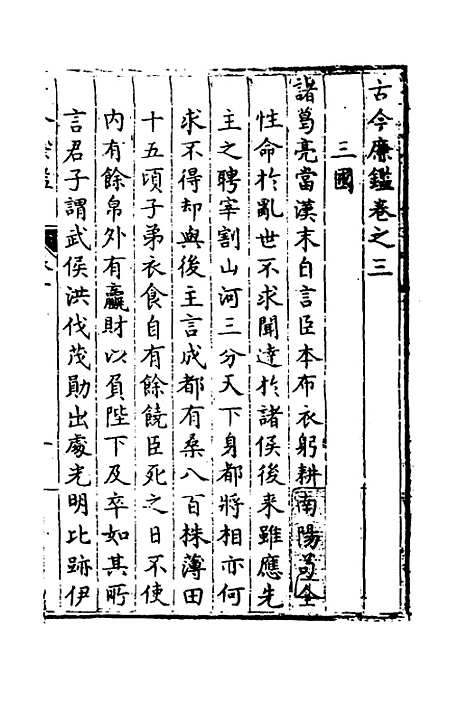 古今廉鑑卷之三
三國
諸葛亮當漢末自言臣本布衣躬耕南陽苟全
性命於亂世不求聞達於諸侯後来雖應先
主之聘宰割山河三分天下身都將相亦何
求不得却與後主言成都有桑八百株薄田
十五頃子弟衣食自有餘饒臣死之日不使
内有餘帛外有贏財以負陛下及卒如其所
言君子謂武侯洪伐茂勛出處光明比跡伊